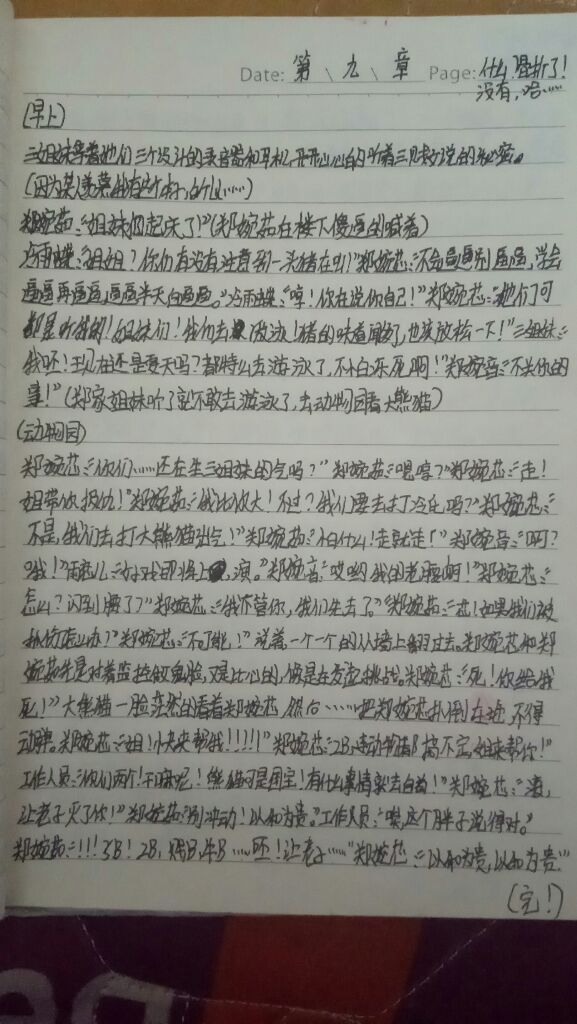 Date: 第 \ 九 \ 章 Page: 什么?骨折了!
没有,哈……
(早上)
三姐妹等着她们三个设计的录音器和耳机,开开心心的听着三只豺说的秘密。
(因为某
郑婉茹:“姐妹们起床了!”(郑婉茹在楼下傻逼的喊着)
冷雨蝶:“姐姐?你们有没有注意到一头猪在叫”郑婉芯:“不会逼逼别逼逼,学会
逼逼再逼逼,逼逼半天白逼逼。”冷雨蝶:“哼!你在说你自己!”郑婉芯:“她们了可
都是听得的!姐妹们!我们去游泳!猪的味道闻久了,也该放松一下!”三姐妹:
“我呸!现在还是夏天吗?都特么去游泳了,不怕冻死啊!”郑婉音:“不关你的
事!”(郑家姐妹听了就不敢去游泳了,去动物园看大熊猫)
(动物园)
郑婉芯:“你们……还在生三姐妹的气吗?”郑婉茹:“嗯哼?”郑婉芯:“走!
姐带你报仇!”郑婉茹:“我比你大!不过?我们要去打冷丘吗?”郑婉芯:“
不是,我们去打大熊猫出气!”郑婉茹:“怕什么!走就走!”郑婉音:“啊?
哦!”雨 儿:“好戏即将上演。”郑婉音:“哎哟我的老腰啊!”郑婉芯:“
怎么?闪到腰了?”郑婉芯:“我不管你,我们先去了。”郑婉茹:“芯!如果我们被
抓伤怎么办?”郑婉芯:“不可能!”说着一个一个的从墙上翻过去。郑婉芯和郑
婉茹先是对着监控做鬼脸,又是比心的,像是在发盗挑战。郑婉芯:“死!你给我
死!”大熊猫一脸茫然的看着郑婉芯,然后……把郑婉芯扑倒在地,不得
动弹。郑婉芯:“姐!快来帮我!!!!!”郑婉芯:“2B,连动物 都搞不定,姐来帮你!”
工作人员:“你们两个!干嘛呢!熊猫可是国宝!有什么事情就去 !”郑婉芯:“滚,
让老子灭了你!”郑婉茹:“别冲动!以和为贵。”工作人员:“噗,这个胖子说得对。”
郑婉茹:“!!!3B!2B,妈B,牛B……呸!让老子……”郑婉芯:“以和为贵,以和为贵。”
(完!)